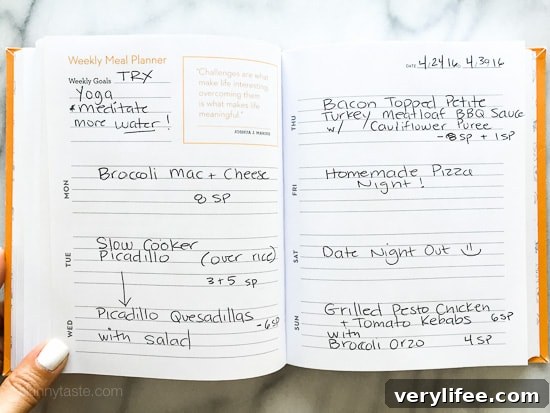 Weekly Meal Planner
Weekly Goals TRX
Yoga
+ meditate
more water!
"Challenges are what
make life interesting,
overcoming them
is what makes life
meaningful."
JOSHUA J. MARINE
MON
Broccoli Mac + Cheese
8 SP
TUE
Slow Cooker
Picadillo (over rice)
3+5 SP
WED
Picadillo Quesadillas
-6SP
with salad
DATE 4.24.16 4.30.16
THU
Bacon Topped Petite
Turkey Meatloaf BBQ Sauce
w/ Cauliflower Puree
-8SP + 1SP
FRI
Homemade Pizza
Night!
SAT
Date Night Out
SUN
Grilled Pesto Chicken
+ Tomato Kebabs 6SP
with
Broccoli Orzo 4SP
verylifee.com